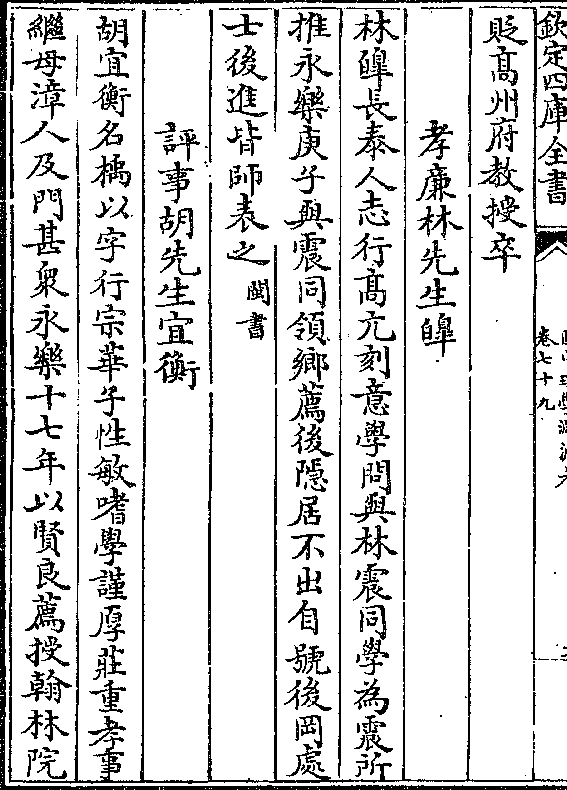 欽定四庫全書
卷七十九
貶髙州府教授卒
孝廉林先生皥
林皥長泰人志行髙亢刻意學問與林震同學為震所
推永樂庚子與震同領鄉薦後隠居不出自號後岡處
士後進皆師表之閩書
評事胡先生宜衡
胡宜衡名橚以字行宗華子性敏嗜學謹厚莊重孝事
繼母漳人及門甚衆永樂十七年以賢良薦授翰林院